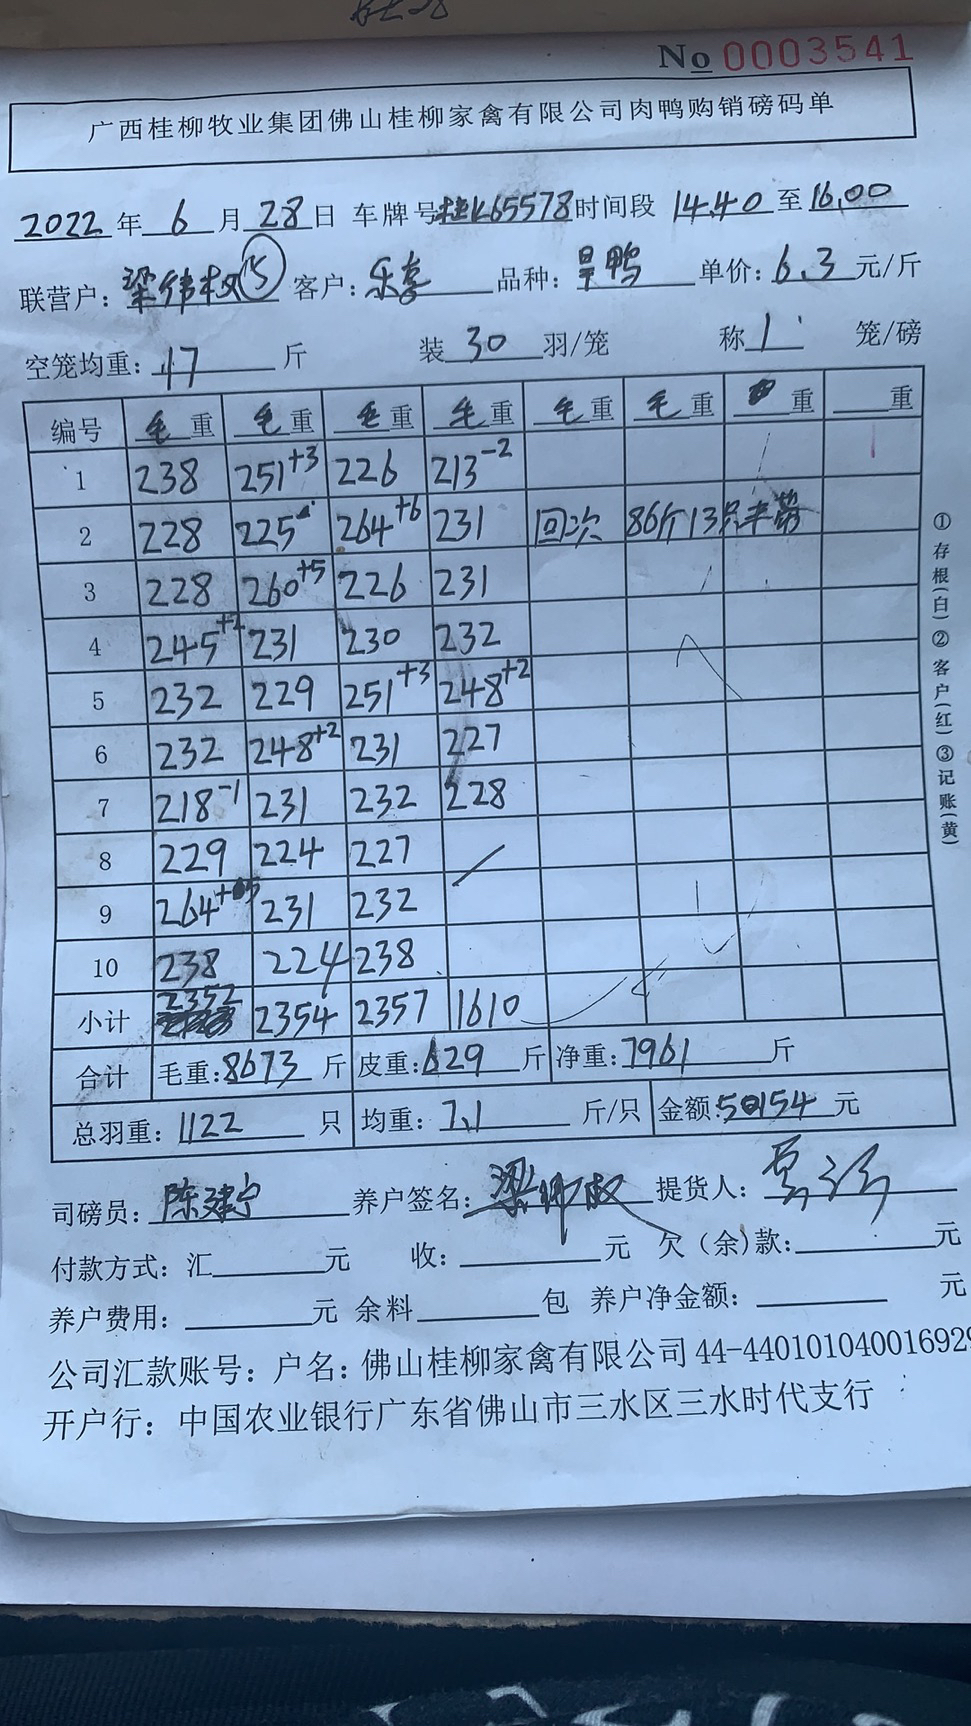 No 0003541
广西桂柳牧业集团佛山桂柳家禽有限公司肉鸭购销磅码单
2022 年 6 月 28 日 车牌号 桂K65578 时间段 14.40 至 16.00
联营户: 梁伟权 15 客户: 乐喜 品种: 旱鸭 单价: 6.3 元/斤
空笼均重: 17 斤 装 30 羽/笼 称 1 笼/磅
编号 毛重 毛重 毛重 毛重 毛重 毛重 重 重
1 238 251+3 226 213-2
2 228 225 264+6 231 回次 86斤13只
3 228 260+5 226 231
4 245+2 231 230 232
5 232 229 251+3 248+2
6 232 248+2 231 227
7 218-1 231 232 228
8 229 224 227
9 264 231 232
10 238 224 238
小计 2352 2354 2357 1610
合计 毛重: 8673 斤 皮重: 629 斤 净重: 7961 斤
总羽重: 1122 只 均重: 7.1 斤/只 金额: 50154 元
司磅员: 陈建宁 养户签名: 提货人:
付款方式: 汇 元 收: 元 欠(余)款: 元
养户费用: 元 余料 包 养户净金额: 元
公司汇款账号: 户名: 佛山桂柳家禽有限公司 44-440101040016929
开户行: 中国农业银行广东省佛山市三水区三水时代支行
①存根(白)②客户(红)③记账(黄)